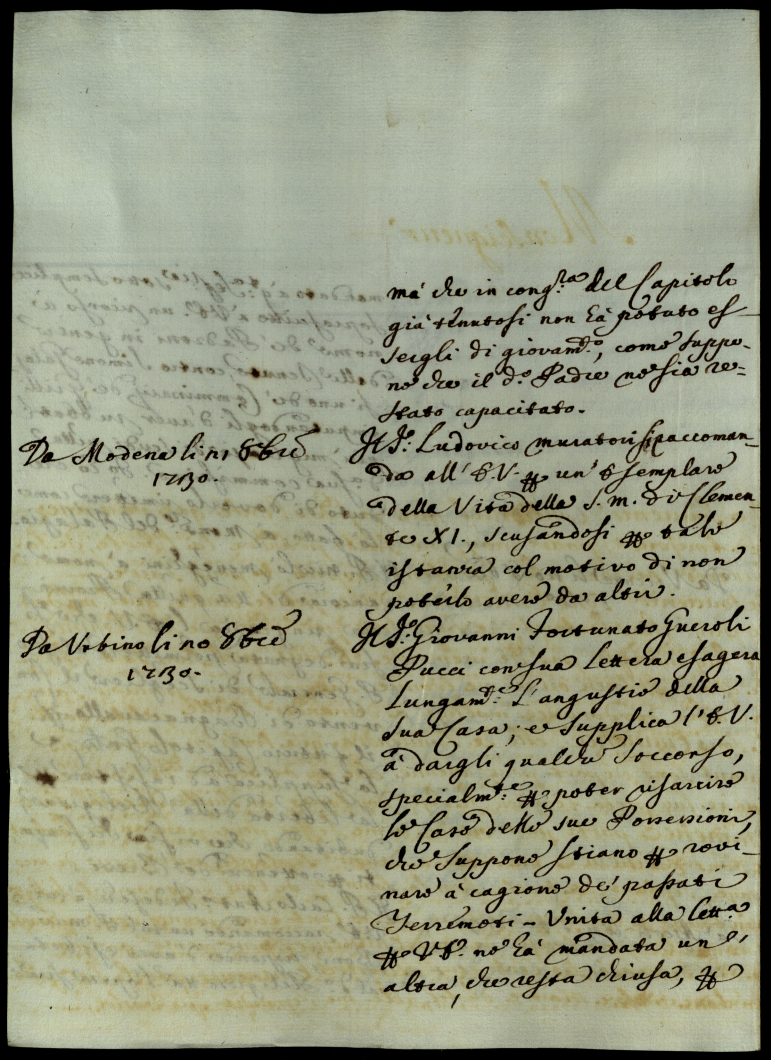 mà che in cong.ne del Capitolo
già tenutosi non hà potuto es-
sergli di giovam.to, come suppo-
ne che il d.o Padre ne sia re-
stato capacitato.
Da Modena li 8bre
1730.
Il S.r Ludovico Muratori si raccoman-
da all' E.V. per un' Esemplare
della Vita della S. M. di Clemen-
te XI., scusandosi per tale
istanza col motivo di non
poterlo avere da altri.
Da Urbino li 8bre
1730.
Il S.r Giovanni Fortunato Gueroli
Pucci con sua lettera esagera
lungam.te l'angustie della
sua Casa; e supplica l'E.V.
à dargli qualche soccorso,
specialm.te per poter risarcire
le Case delle sue Possessioni,
che suppone stiano per rovi-
nare à cagione de' passati
Terremoti - Unita alla lett.a
per ne hà mandata un'
altra, che resta chiusa, per